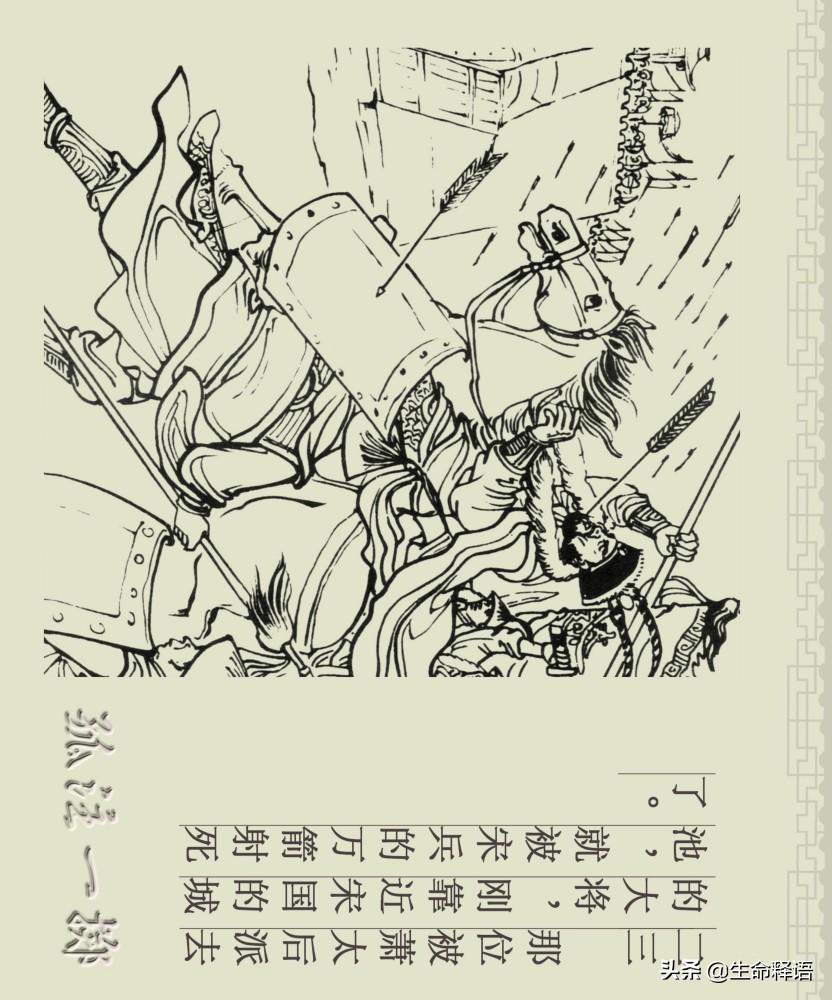 孤注一掷
二三
那位被萧太后派去
的大将，刚靠近宋国的城
池，就被宋兵的万箭射死
了。
头条 @生命释语